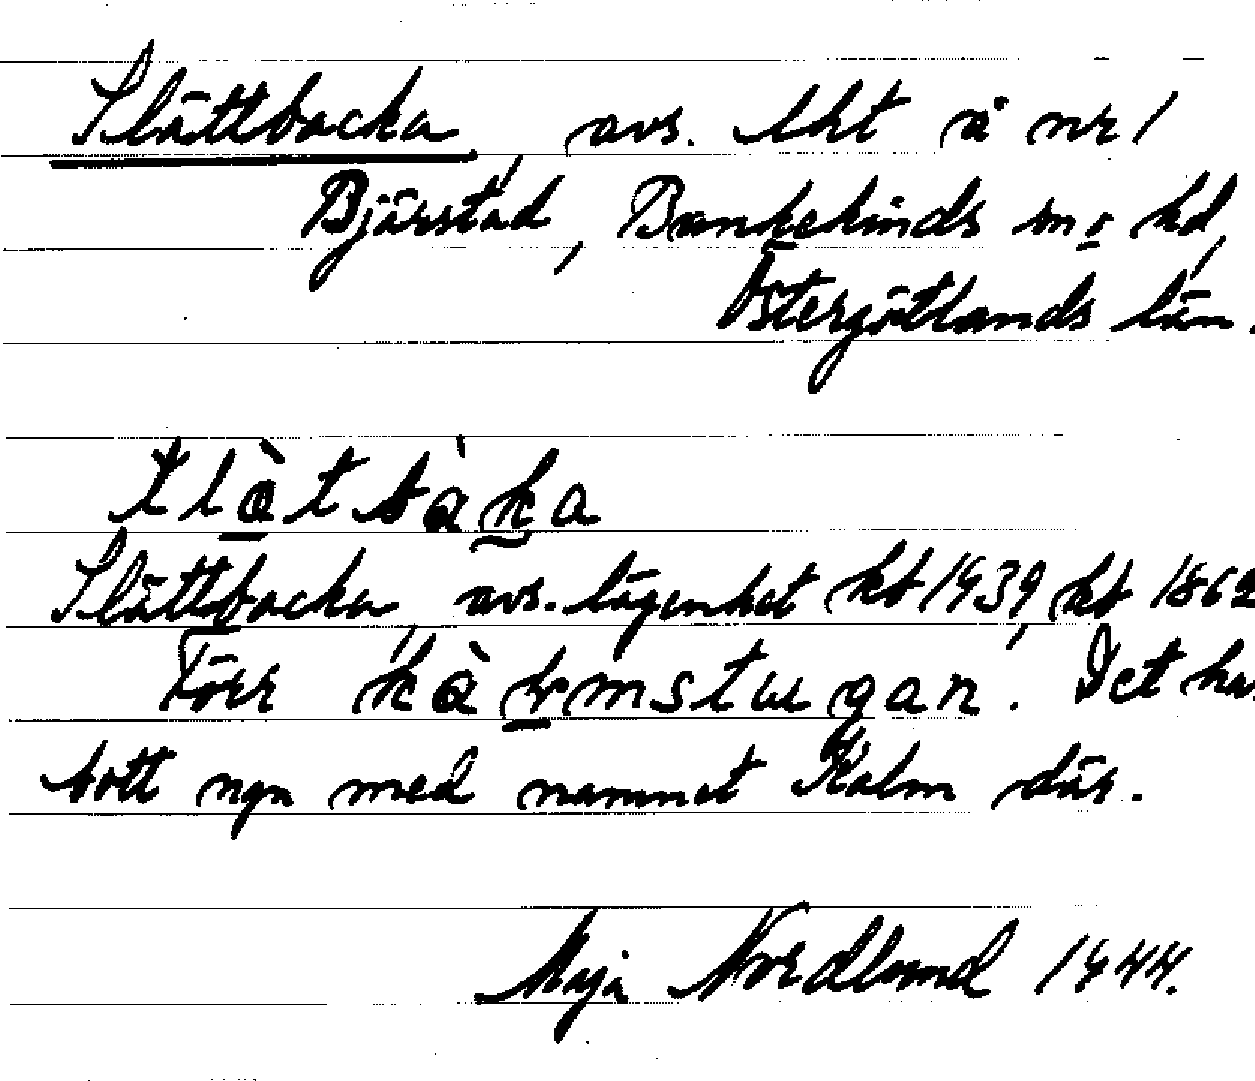 Slättbacka, avs. lht å nr 1
Bjärstad, Bankekinds sn o hd,
Östergötlands län.
slàtbàka
Slättbacka, avs. lägenhet kb 1939, kb 1862
Förr kàrmstugan. Det har
bott ngn med namnet Kalm där.
Maja Nordlund 1944.